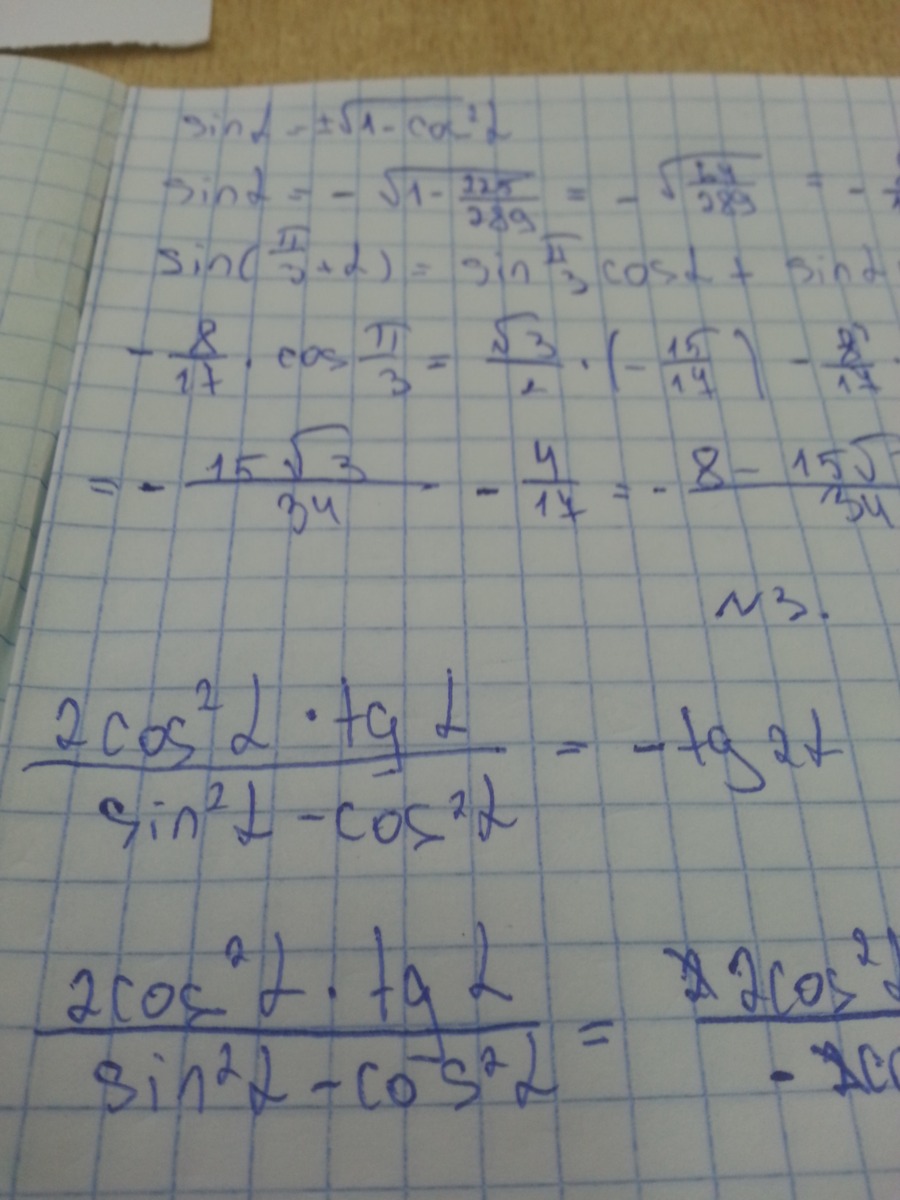 sin α = ±√(1 - cos² α)
sin α = - √(1 - 225/289) = - √(64/289) = -
sin(π/3 + α) = sin π/3 cos α + sin α
- 8/17 · cos π/3 = √3/2 · (- 15/17) - 8/17 ·
= - 15√3/34 - 4/17 = - 8 - 15√/34
N3.
2cos² α · tg α / sin² α - cos² α = - tg 2α
2cos² α · tg α / sin² α - cos² α = 2cos² α / -